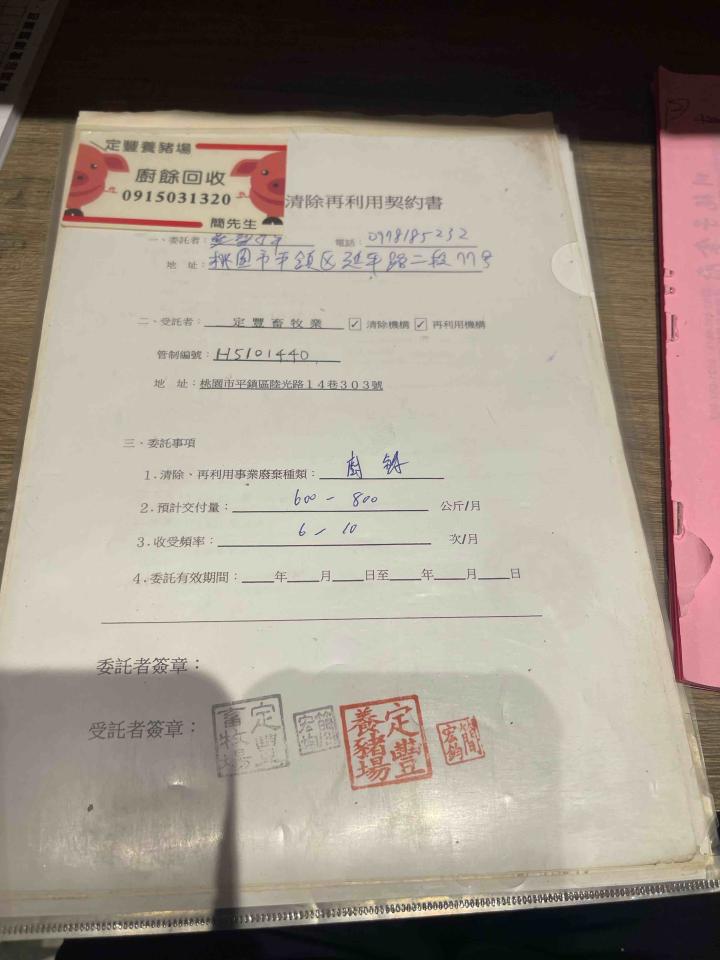 定豐養豬場
廚餘回收
0915031320
簡先生
清除再利用契約書
一、委託者： 電話：0978185232
地 址：桃園市平鎮區延平路二段77号
二、受託者： 定豐畜牧業 ☑ 清除機構 ☑ 再利用機構
管制編號：H5101440
地 址：桃園市平鎮區陸光路14巷303號
三、委託事項
1.清除、再利用事業廢棄種類：廚餘
2.預計交付量：600－800 公斤/月
3.收受頻率：6－10 次/月
4.委託有效期間：____年____月____日至____年____月____日
委託者簽章：
受託者簽章：
定豐畜牧場
簡宏鈞
定豐養豬場
簡宏鈞